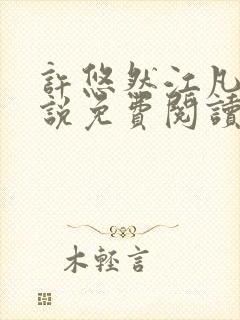 許悠然江凡
說免費閱讀
木輕言